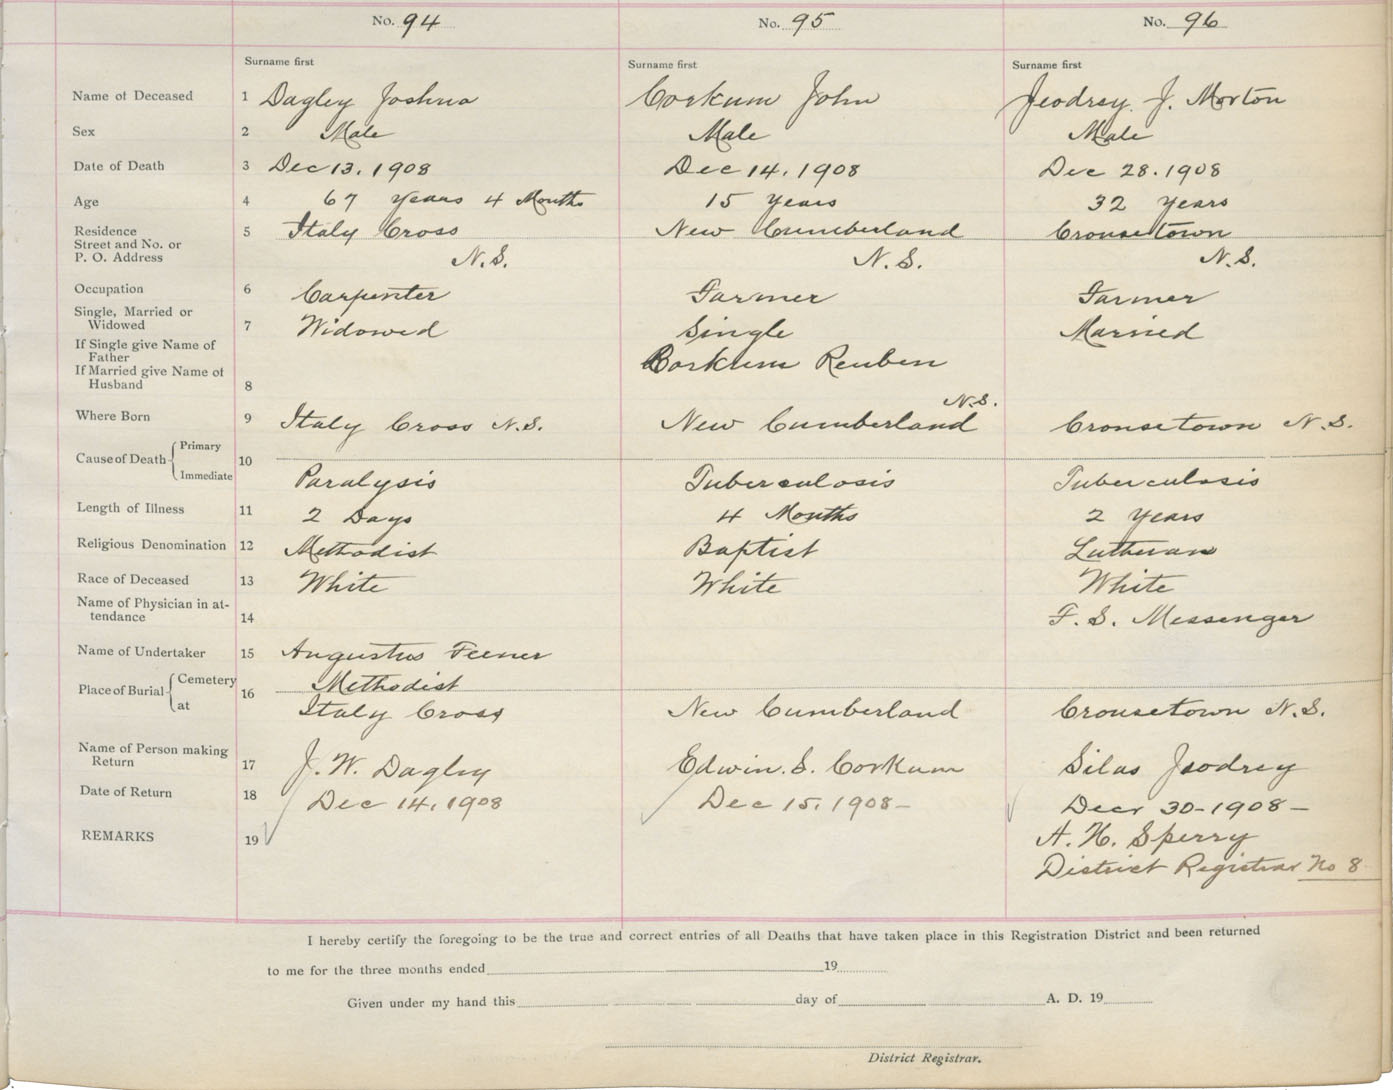 No. 94 No. 95 No. 96
Surname first Surname first Surname first
Name of Deceased 1 Dagley Joshua Corkum John Jeodrey J. Morton
Sex 2 Male Male Male
Date of Death 3 Dec 13, 1908 Dec 14, 1908 Dec 28. 1908
Age 4 67 years 4 Months 15 years 32 years
Residence 5 Italy Cross New Cumberland Crousetown
Street and No. or
P. O. Address N.S. N.S. N.S.
Occupation 6 Carpenter Farmer Farmer
Single, Married or
Widowed 7 Widowed Single Married
If Single give Name of
Father Corkum Reuben
If Married give Name of
Husband 8
N.S.
Where Born 9 Italy Cross N.S. New Cumberland Crousetown N.S.
Primary
Cause of Death 10
Immediate Paralysis Tuberculosis Tuberculosis
Length of Illness 11 2 Days 4 Months 2 years
Religious Denomination 12 Methodist Baptist Lutheran
Race of Deceased 13 White White White
Name of Physician in at-
tendance 14 F. S. Messenger
Name of Undertaker 15 Augustus Feener
Cemetery Methodist
Place of Burial 16
at Italy Cross New Cumberland Crousetown N.S.
Name of Person making
Return 17 J. W. Dagley Edwin. S. Corkum Silas Jeodrey
Date of Return 18 Dec 14, 1908 Dec 15, 1908- Decr 30-1908-
REMARKS 19 A. H. Sperry
District Registrar No 8
I hereby certify the foregoing to be the true and correct entries of all Deaths that have taken place in this Registration District and been returned
to me for the three months ended 19
Given under my hand this day of A. D. 19
District Registrar.